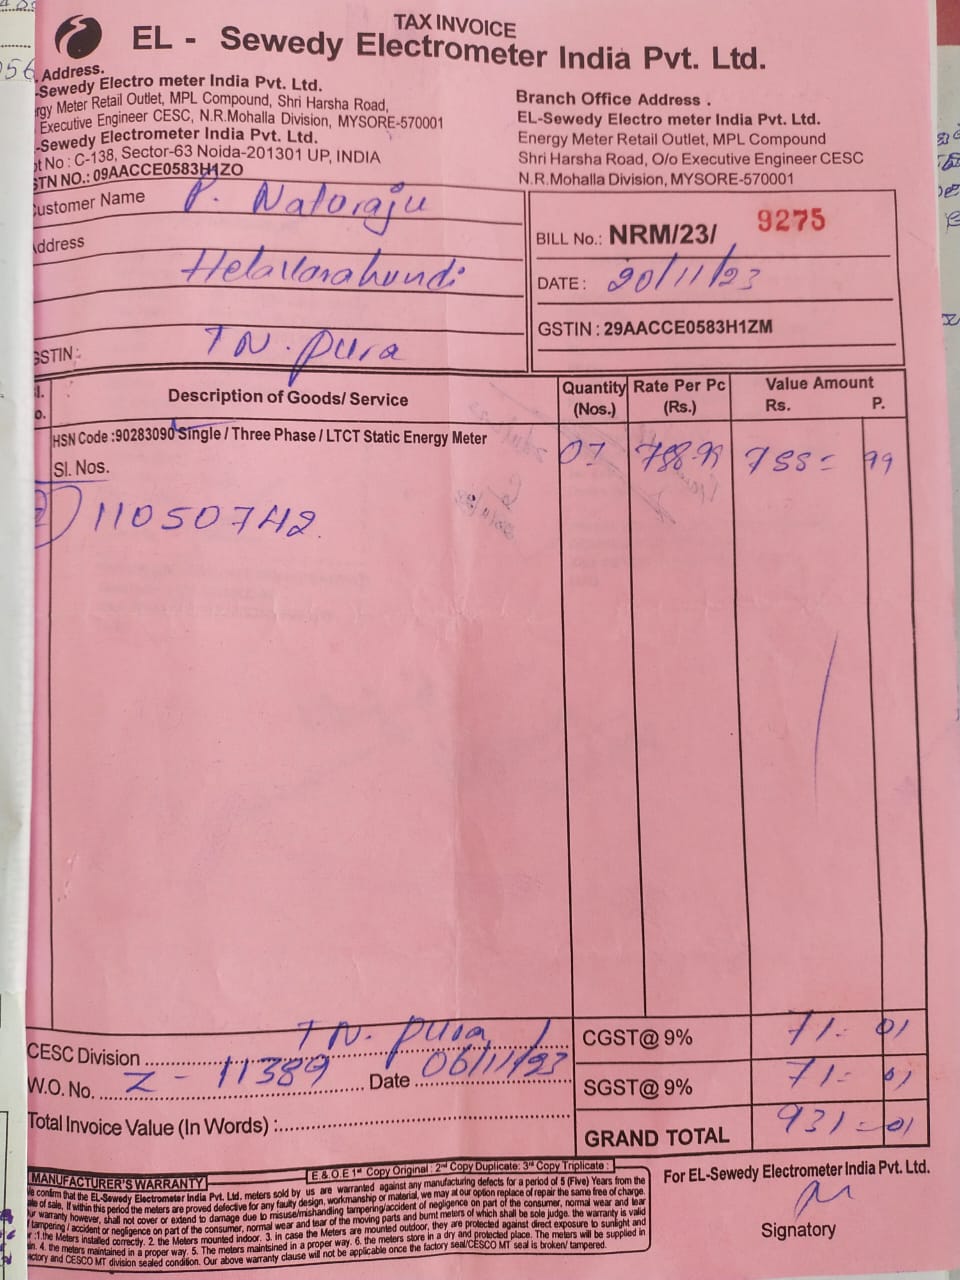 TAX INVOICE
EL - Sewedy Electrometer India Pvt. Ltd.
Address.
-Sewedy Electro meter India Pvt. Ltd.
rgy Meter Retail Outlet, MPL Compound, Shri Harsha Road,
Executive Engineer CESC, N.R.Mohalla Division, MYSORE-570001
-Sewedy Electrometer India Pvt. Ltd.
ot No : C-138, Sector-63 Noida-201301 UP, INDIA
STN NO.: 09AACCE0583H1ZO
Branch Office Address .
EL-Sewedy Electro meter India Pvt. Ltd.
Energy Meter Retail Outlet, MPL Compound
Shri Harsha Road, O/o Executive Engineer CESC
N.R.Mohalla Division, MYSORE-570001
Customer Name P. Nataraju
Address
GSTIN : TN. pura
BILL No.: NRM/23/ 9275
DATE : 20/11/23
GSTIN : 29AACCE0583H1ZM
Description of Goods/ Service
Quantity (Nos.)
Rate Per Pc (Rs.)
Value Amount
Rs. P.
HSN Code :90283090 Single / Three Phase / LTCT Static Energy Meter
Sl. Nos.
01 788-99 788= 99
11050742
CESC Division TN. pura
W.O. No. Z - 11389 Date 06/11/23
Total Invoice Value (In Words) :
CGST@ 9% 71- 01
SGST@ 9% 71= 01
GRAND TOTAL 931=01
E & O.E 1st Copy Original : 2nd Copy Duplicate: 3rd Copy Triplicate :
MANUFACTURER'S WARRANTY
e confirm that the EL-Sewedy Electrometer India Pvt. Ltd. meters sold by us are warranted against any manufacturing defects for a period of 5 (Five) Years from the
ate of sale, If within this period the meters are proved defective for any faulty design, workmanship or material, we may at our option replace of repair the same free of charge.
ur warranty however, shall not cover or extend to damage due to misuse/mishandling tampering/accident of negligence on part of the consumer, normal wear and tear
tampering / accident or negligence on part of the consumer, normal wear and tear of the moving parts and burnt meters of which shall be sole judge. the warranty is valid
:1.the Meters installed correctly. 2. the Meters mounted indoor. 3. in case the Meters are mounted outdoor, they are protected against direct exposure to sunlight and
in. 4. the meters maintained in a proper way. 5. The meters maintsined in a proper way. 6. the meters store in a dry and protected place. The meters will be supplied in
actory and CESCO MT division sealed condition. Our above warranty clause will not be applicable once the factory seal/CESCO MT seal is broken/ tampered.
For EL-Sewedy Electrometer India Pvt. Ltd.
Signatory